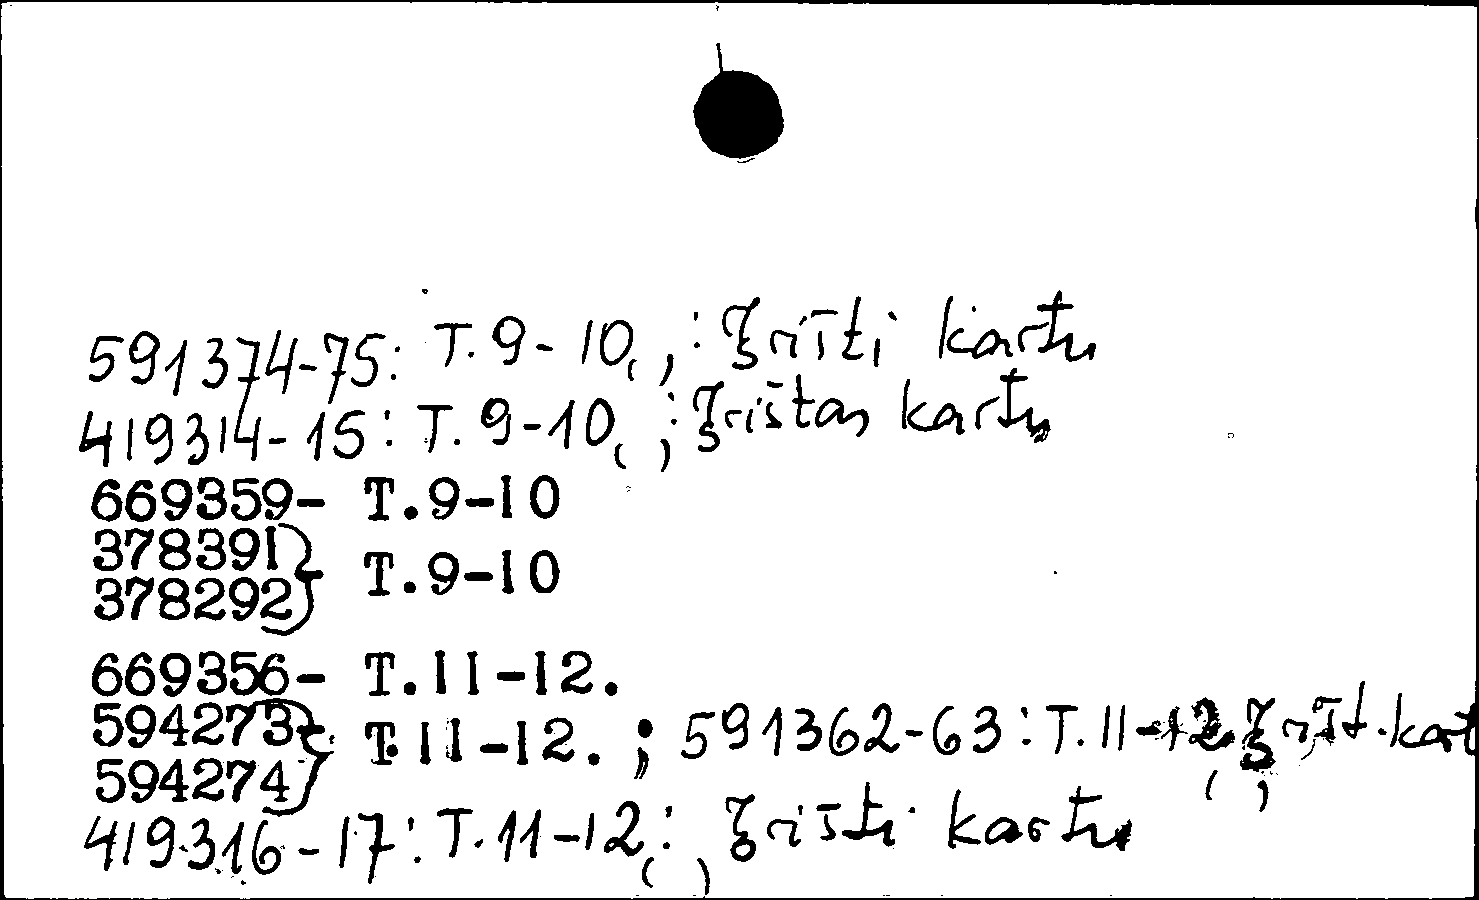 591374-75: T. 9-10( ,: Įrišti kartu
419314-15: T. 9-10( ); Įrištas kartu
669359- T.9-10
378391}
T.9-10
378292}
669356- T.11-12.
594273-} T.11-12. ; 591362-63: T. 11-12 Įrišt. kart
594274}
419316-17: T. 11-12( ): Įrišti kartu